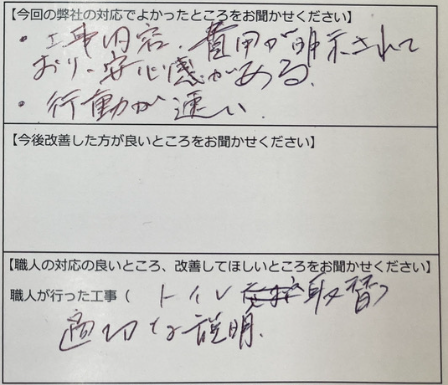 【今回の弊社の対応でよかったところをお聞かせください】
・工事内容、費用が明示されて
おり、安心感がある。
・行動が速い.
【今後改善した方が良いところをお聞かせください】
【職人の対応の良いところ、改善してほしいところをお聞かせください】
職人が行った工事( トイレ 取替)
適切な説明.